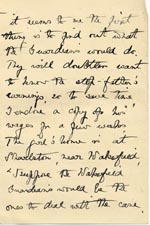 it seems to me the first
thing is to find out what
the Guardians would do.
They will doubtless want
to know the step-father's
earnings so to save time
I enclose a copy of his
wages for a few weeks
The girl's home is at
near Wakefield
& I suppose the Wakefield
Guardians would be the
ones to deal with the case.